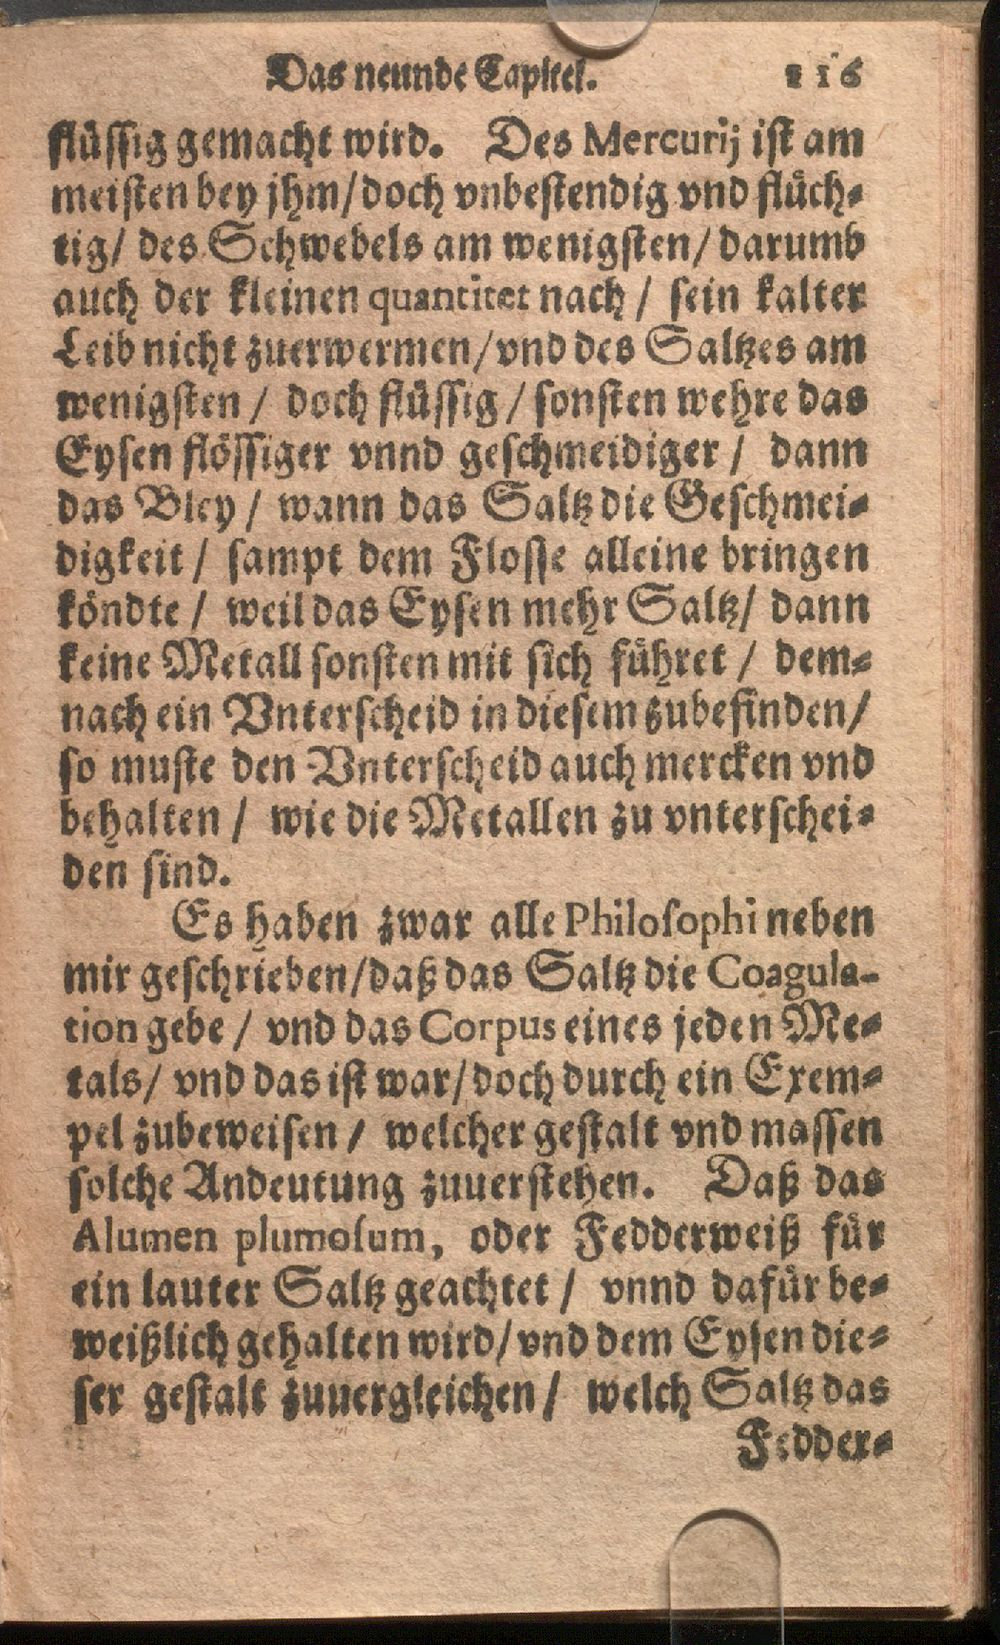 Das neunde Capitel. 116
flüssig gemacht wird. Des Mercurij ist am
meisten bey jhm/doch vnbestendig vnd flüch-
tig/ des Schwebels am wenigsten/ darumb
auch der kleinen quantitet nach/ sein kalter
Leib nicht zuerwermen/vnd des Saltzes am
wenigsten/ doch flüssig/ sonsten wehre das
Eysen flössiger vnnd geschmeidiger/ dann
das Bley/ wann das Saltz die Geschmei-
digkeit/ sampt dem Flosse alleine bringen
köndte/ weil das Eysen mehr Saltz/ dann
keine Metall sonsten mit sich führet/ dem-
nach ein Vnterscheid in diesem zubefinden/
so muste den Vnterscheid auch mercken vnd
behalten/ wie die Metallen zu vnterschei-
den sind.
Es haben zwar alle Philosophi neben
mir geschrieben/daß das Saltz die Coagula-
tion gebe/ vnd das Corpus eines jeden Me-
tals/ vnd das ist war/doch durch ein Exem-
pel zubeweisen/ welcher gestalt vnd massen
solche Andeutung zuuerstehen. Daß das
Alumen plumosum, oder Fedderweiß für
ein lauter Saltz geachtet/ vnnd dafür be-
weißlich gehalten wird/vnd dem Eysen die-
ser gestalt zuuergleichen/ welch Saltz das
Fedder-